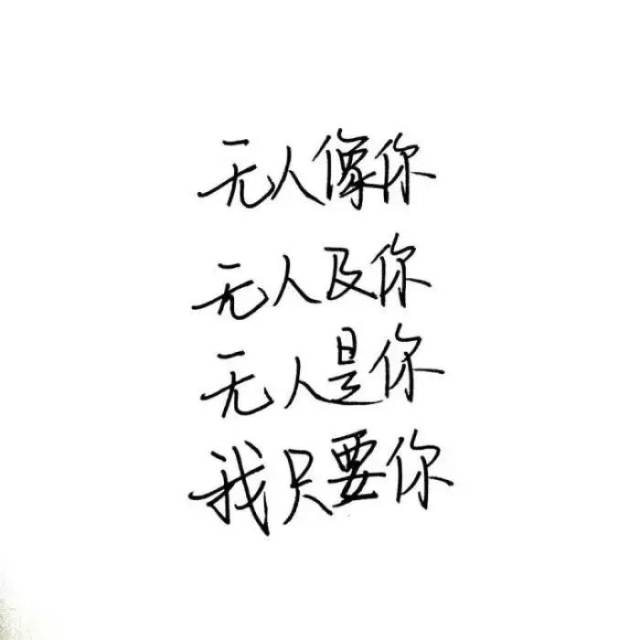 无人像你
无人及你
无人是你
我只要你